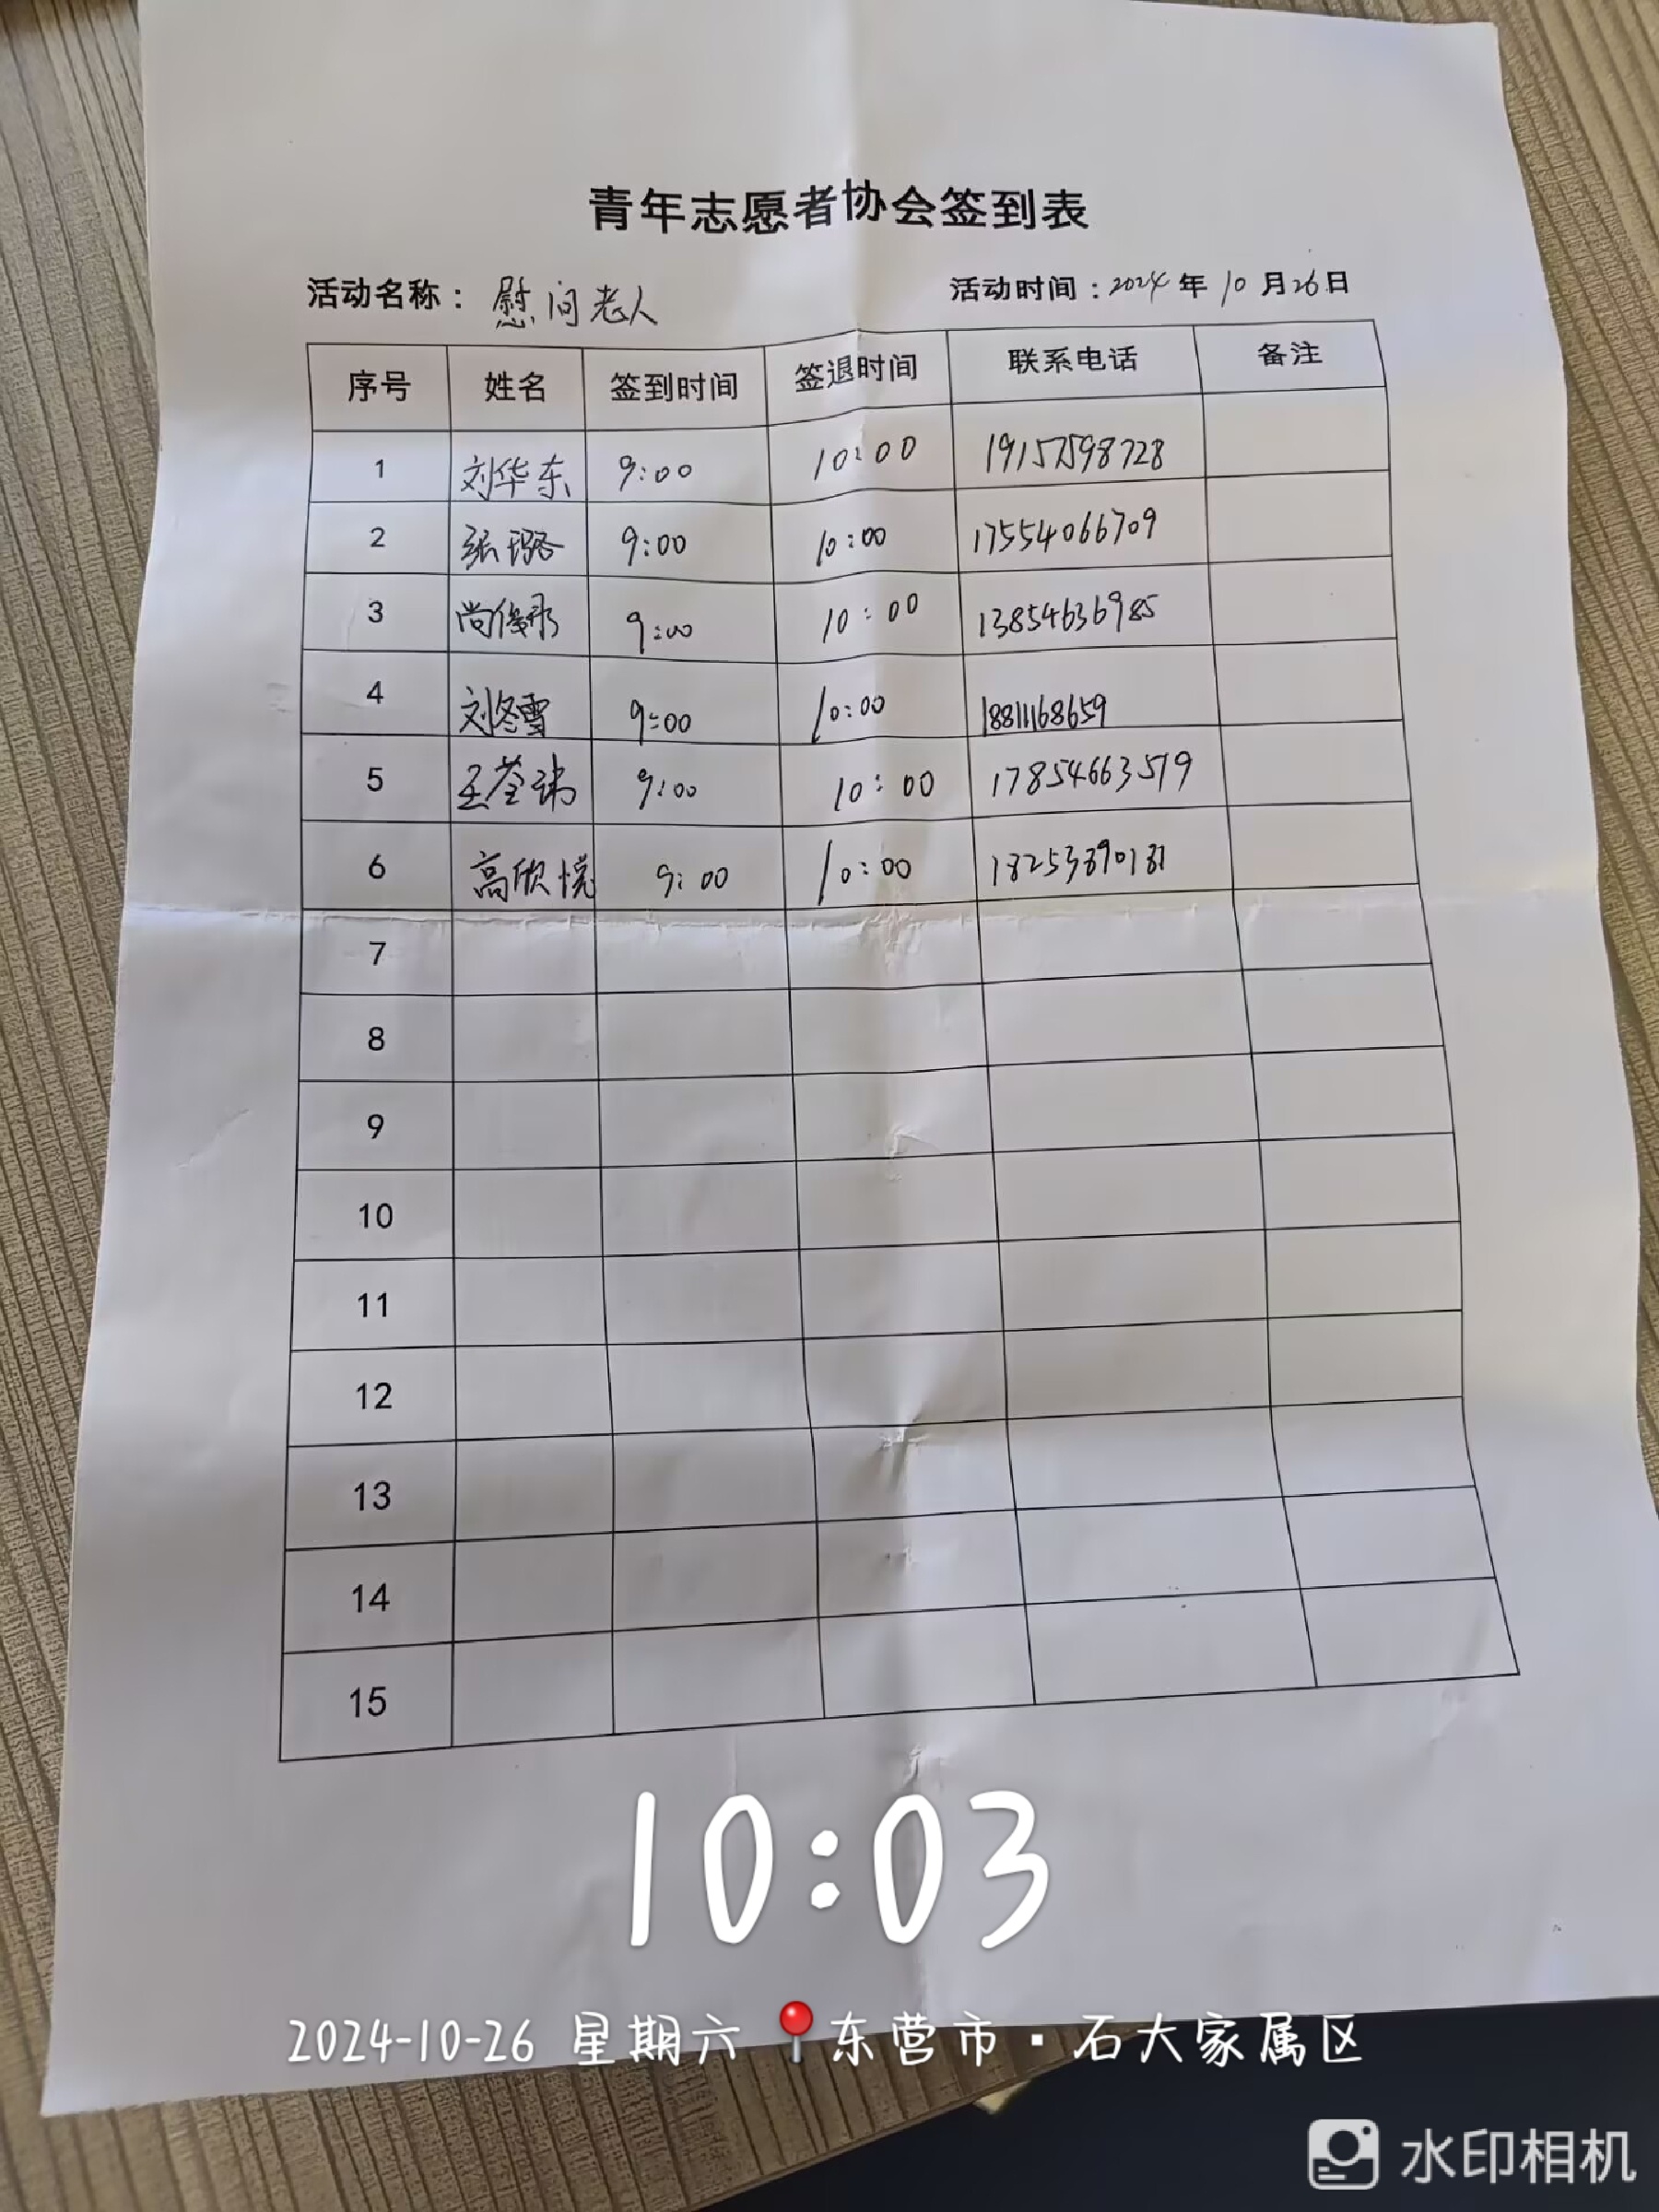 青年志愿者协会签到表
活动名称：慰问老人 活动时间：2024年10月26日
序号 姓名 签到时间 签退时间 联系电话 备注
1 刘华东 9:00 10:00 19157598728
2 张璐 9:00 10:00 17554066709
3 尚俊彤 9:00 10:00 13854636985
4 刘冬雪 9:00 10:00 18811168659
5 王荃 9:00 10:00 17854663519
6 高欣悦 9:00 10:00
7
8
9
10
11
12
13
14
15
10:03
2024-10-26 星期六 东营市·石大家属区
水印相机